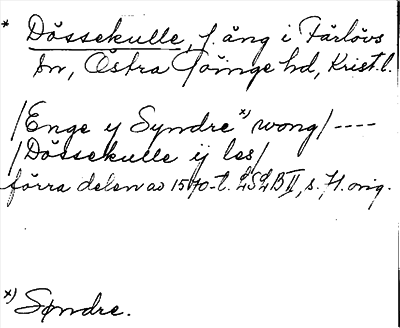 * Dössekulle, f. äng i Färlövs
sn, Östra Göinge hd, Krist.l.
/Enge y Syndre x) wong/ ----
/Dössekulle ij les/
förra delen av 1570-t. LSLB II, s. 71. orig.
x) Søndre.